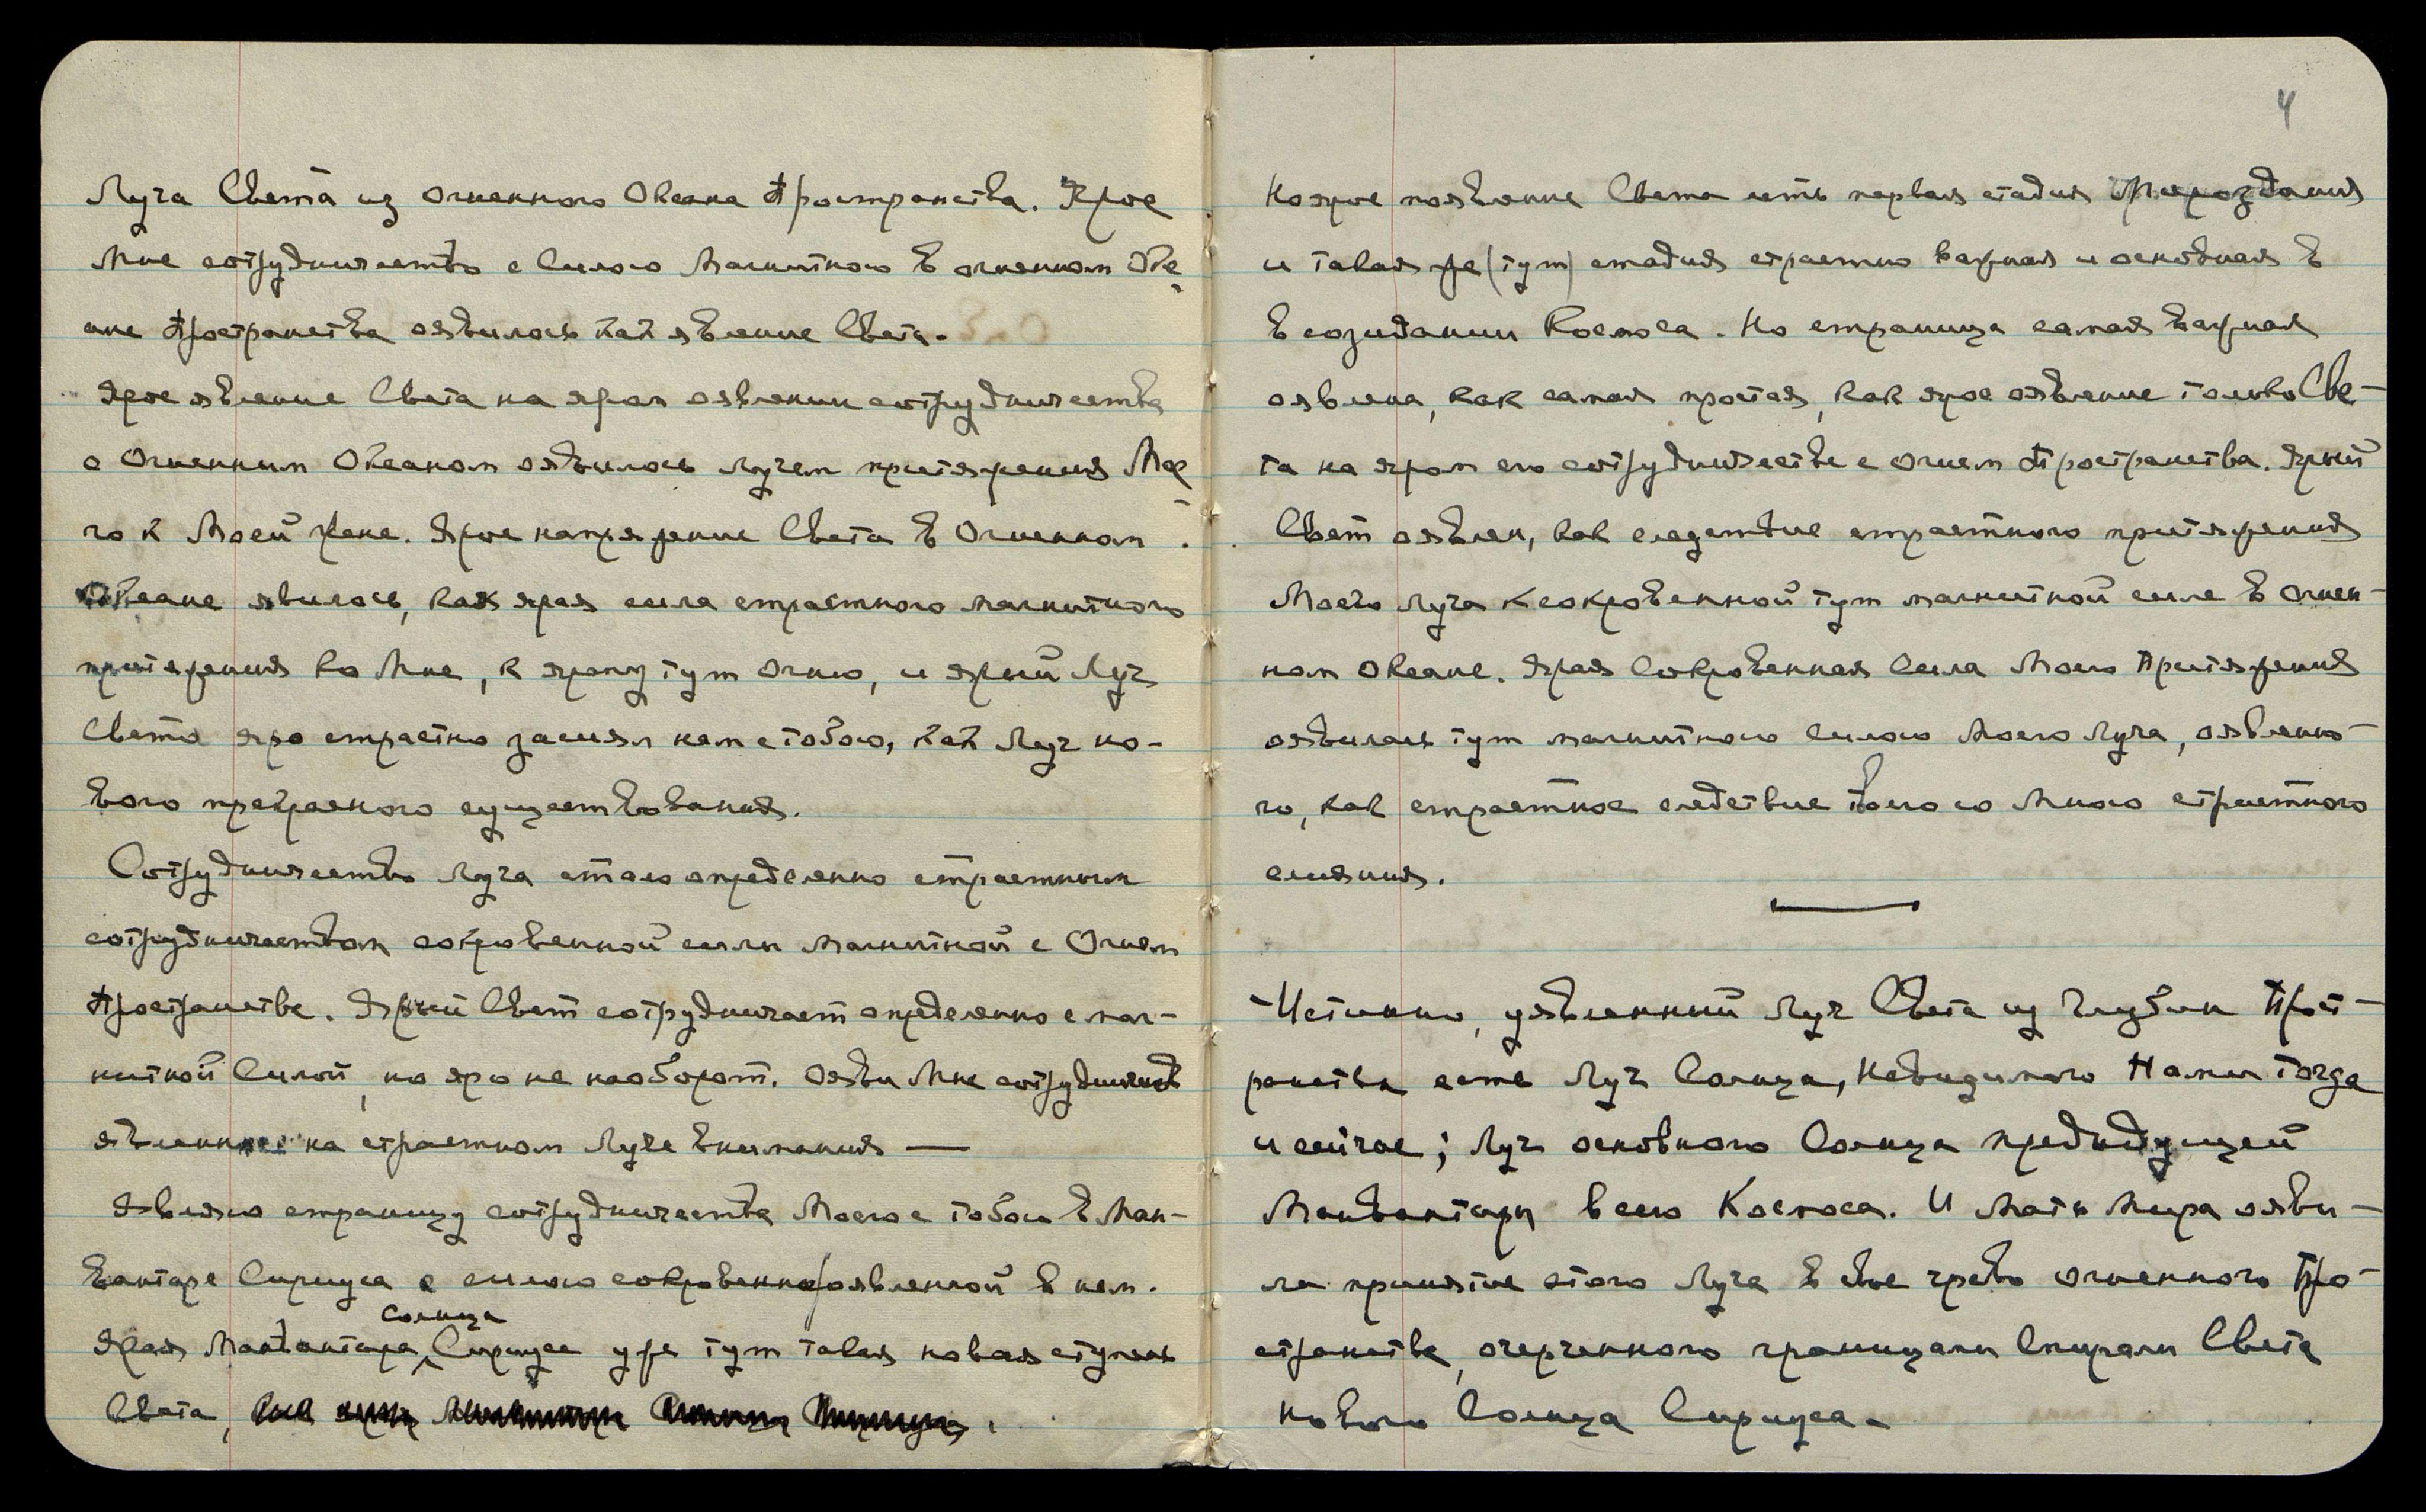 Луча Света из огненного Океана Пространства. Ярое
Мне сотрудничество с Силою Магнитною в огненном Оке
ане Пространства оявилось как явление Света.
Ярое явление Света на яром оявлении сотрудничества
с Огненным Океаном оявилось лучем притяжения Мое
го к Моей Жене. Ярое напряжение Света в Огненном
Океане явилось, как ярая сила страстного магнитного
притяжения ко Мне, к ярому тут огню, и ярый Луч
Света яро страстно засиял нам с тобою, как Луч но-
вого прекрасного существования.
Сотрудничество Луча стало определенно страстным
сотрудничеством сокровенной силы магнитной с Огнем
Пространства. Ярый Свет сотрудничает определенно с маг-
нитной Силой, но яро не наоборот. Ояви Мне сотрудничество
на страстном Луче внимания —
Являю страницу сотрудничества Моего с тобою в Ман-
вантаре Сириуса с силою сокровенно оявленной в нем.
Солнца
Ярая Манвантара Сириуса уже тут такая новая ступень
Света,
4
Но ярое появление Света есть первая стадия Мироздания
и такая же (тут) стадия страстно важная и основная в
в созидании Космоса. Но страница самая важная
оявлена, как самая простая, как ярое оявление только Све-
та на яром его сотрудничестве с огнем Пространства. Ярый
Свет оявлен, как следствие страстного притяжения
Моего Луча к сокровенной тут магнитной силе в Огнен-
ном Океане. Ярая Сокровенная Сила Моего Притяжения
оявилась тут магнитною Силою Моего Луча, оявленно-
го, как страстное следствие твоего со Мною страстного
слияния.
Истинно, уявленный Луч Света из Глубин Прост-
ранства есть Луч Солнца, Невидимого Нами тогда
и сейчас; Луч основного Солнца предыдущей
Манвантары всего Космоса. И Мать Мира ояви-
ла принятие этого Луча в свое чрево огненного Про-
странства, очерченного границами Спирали Света
нового Солнца Сириуса.